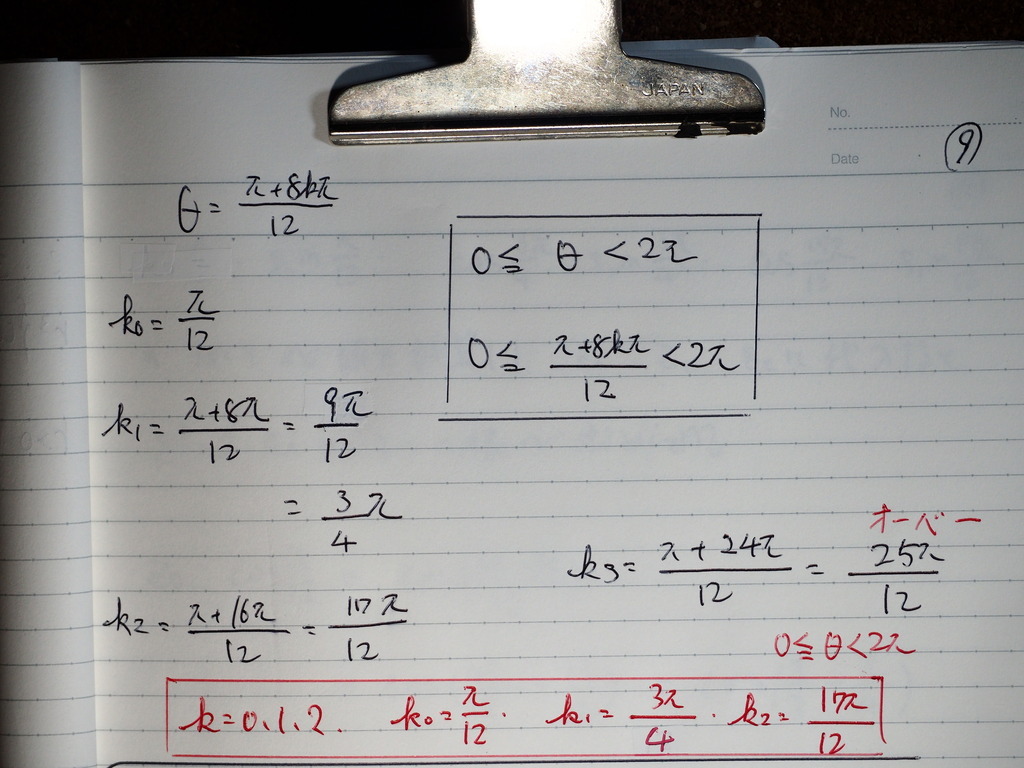 JAPAN
No.
Date
⑨
θ = (π+8kπ)/12
0 ≦ θ < 2π
0 ≦ (π+8kπ)/12 < 2π
k₀ = π/12
k₁ = (π+8π)/12 = 9π/12
= 3/4 π
オーバー
k₃ = (π+24π)/12 = 25π/12
0 ≦ θ < 2π
k₂ = (π+16π)/12 = 17π/12
k=0.1.2. k₀ = π/12 . k₁ = 3π/4 . k₂ = 17π/12